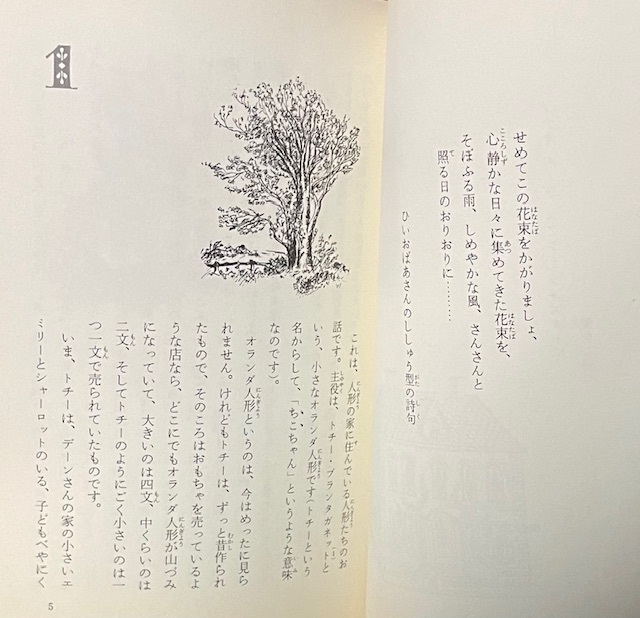 せめてこの花束をかがりましょ、
心静かな日々に集めてきた花束を、
そぼふる雨、しめやかな風、さんさんと
照る日のおりおりに………
ひいおばあさんのししゅう型の詩句
1
これは、人形の家に住んでいる人形たちのお
話です。主役は、トチー・プランタガネットと
いう、小さなオランダ人形です(トチーという
名からして、「ちこちゃん」というような意味
なのです)。
オランダ人形というのは、今はめったに見ら
れません。けれどもトチーは、ずっと昔作られ
たもので、そのころはおもちゃを売っているよ
うな店なら、どこにでもオランダ人形が山づみ
になっていて、大きいのは四文、中くらいのは
二文、そしてトチーのようにごく小さいのは一
つ一文で売られていたものです。
いま、トチーは、デーンさんの家の小さいエ
ミリーとシャーロットのいる、子どもべやにく
5